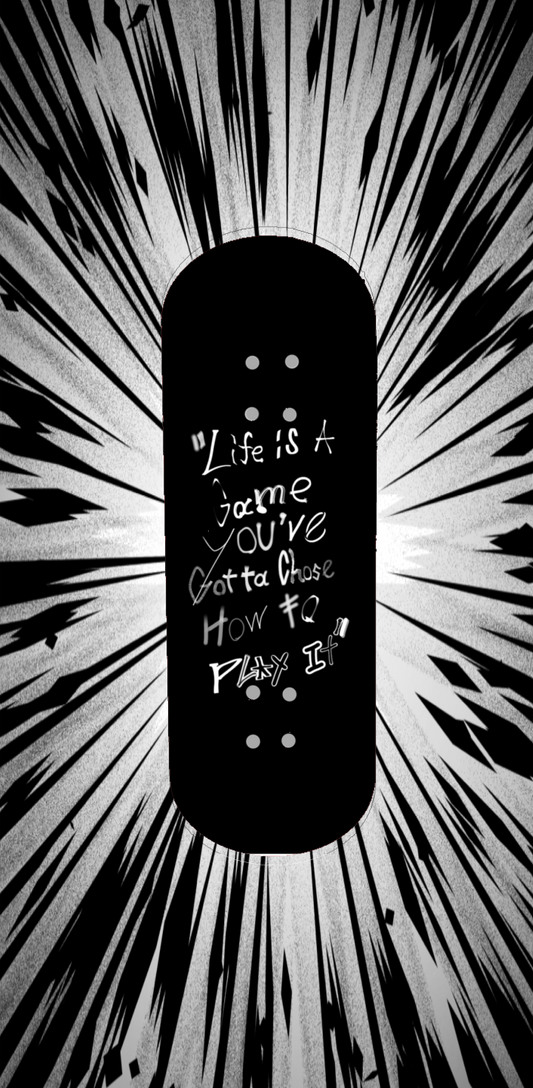 "Life is A
Game
You've
Gotta Chose
How TO
Play It"